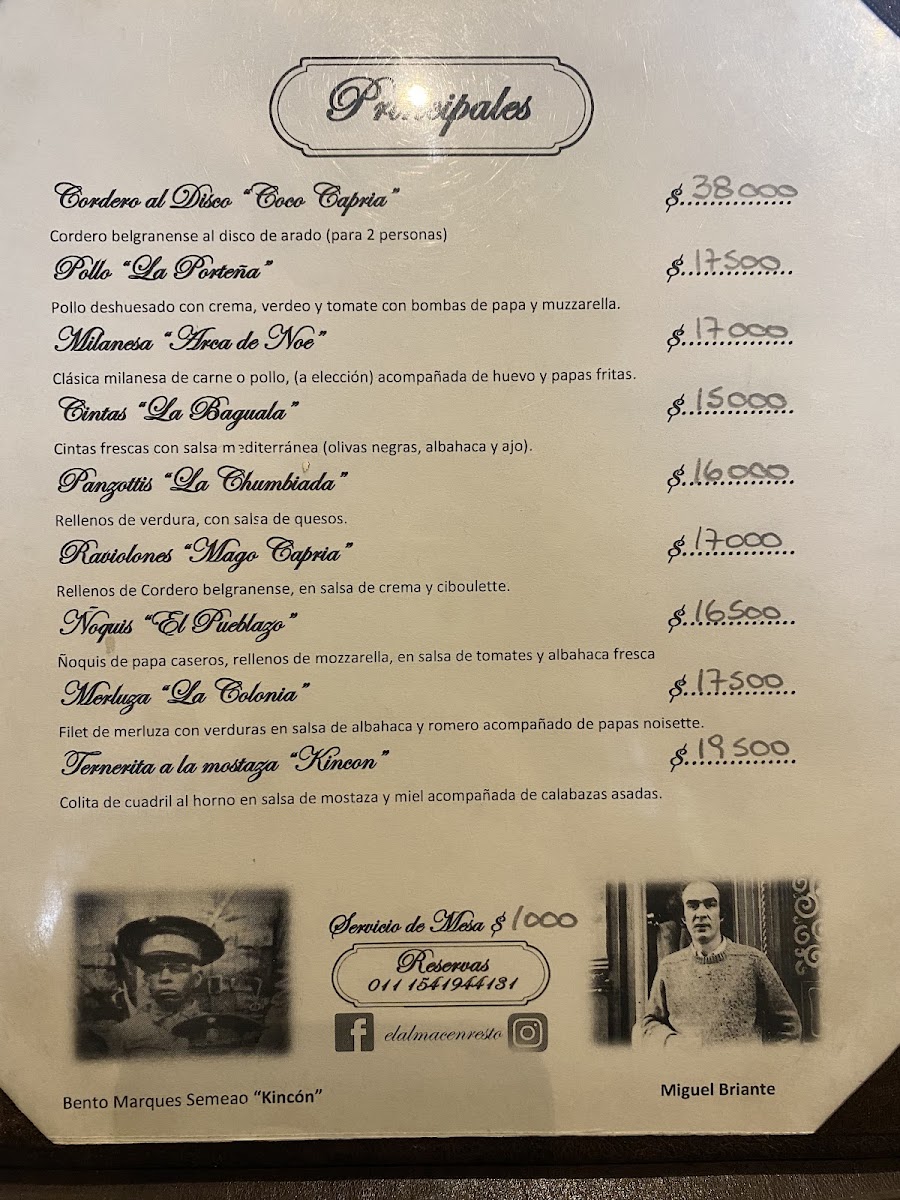 Principales
Cordero al Disco "Coco Capria" $ 38000
Cordero belgranense al disco de arado (para 2 personas)
Pollo "La Porteña" $ 17500
Pollo deshuesado con crema, verdeo y tomate con bombas de papa y muzzarella.
Milanesa "Arca de Noe" $ 17000
Clásica milanesa de carne o pollo, (a elección) acompañada de huevo y papas fritas.
Cintas "La Baguala" $ 15000
Cintas frescas con salsa mediterránea (olivas negras, albahaca y ajo).
Panzottis "La Chumbiada" $ 16000
Rellenos de verdura, con salsa de quesos.
Raviolones "Mago Capria" $ 17000
Rellenos de Cordero belgranense, en salsa de crema y ciboulette.
Ñoquis "El Pueblazo" $ 16500
Ñoquis de papa caseros, rellenos de mozzarella, en salsa de tomates y albahaca fresca
Merluza "La Colonia" $ 17500
Filet de merluza con verduras en salsa de albahaca y romero acompañado de papas noisette.
Ternerita a la mostaza "Kincon" $ 19500
Colita de cuadril al horno en salsa de mostaza y miel acompañada de calabazas asadas.
Servicio de Mesa $ 1000
Reservas
011 1541944131
elalmacenresto
Bento Marques Semeao "Kincón"
Miguel Briante